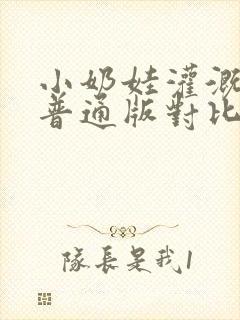 小奶娃灌溉
普通版對比
隊長是我1